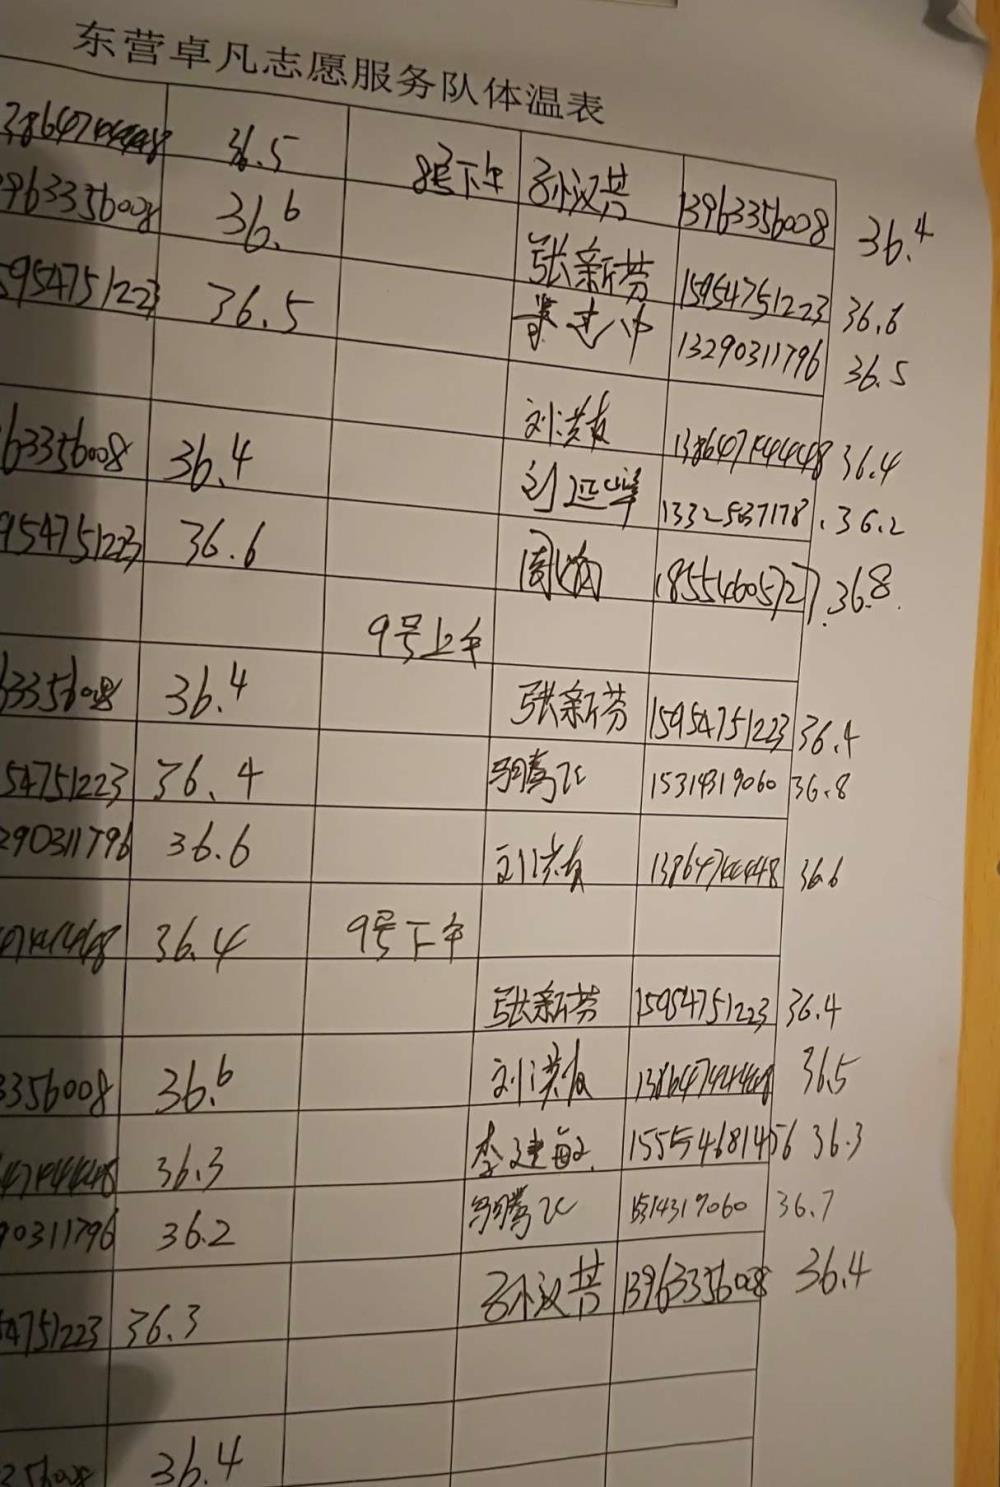 东营卓凡志愿服务队体温表
13864744448 36.5 8号下午 孙汉芳 13963356008 36.4
3963356008 36.6 张新芬 15954751223 36.6
5954751223 36.5 13290311796 36.5
刘洪友 13864744448 36.4
63356008 36.4 刘匹峰 13325637178 36.2
954751223 36.6 周 18554605727 36.8
9号上午
63356008 36.4 张新芬 15954751223 36.4
54751223 36.4 腾飞 15314319060 36.8
290311796 36.6 刘洪友 13864744448 36.6
4744448 36.4 9号下午
张新芬 15954751223 36.4
3356008 36.6 刘洪友 13864744448 36.5
4744448 36.3 李建敏 15554681456 36.3
90311796 36.2 腾飞 15314319060 36.7
54751223 36.3 孙汉芳 13963356008 36.4
3356008 36.4